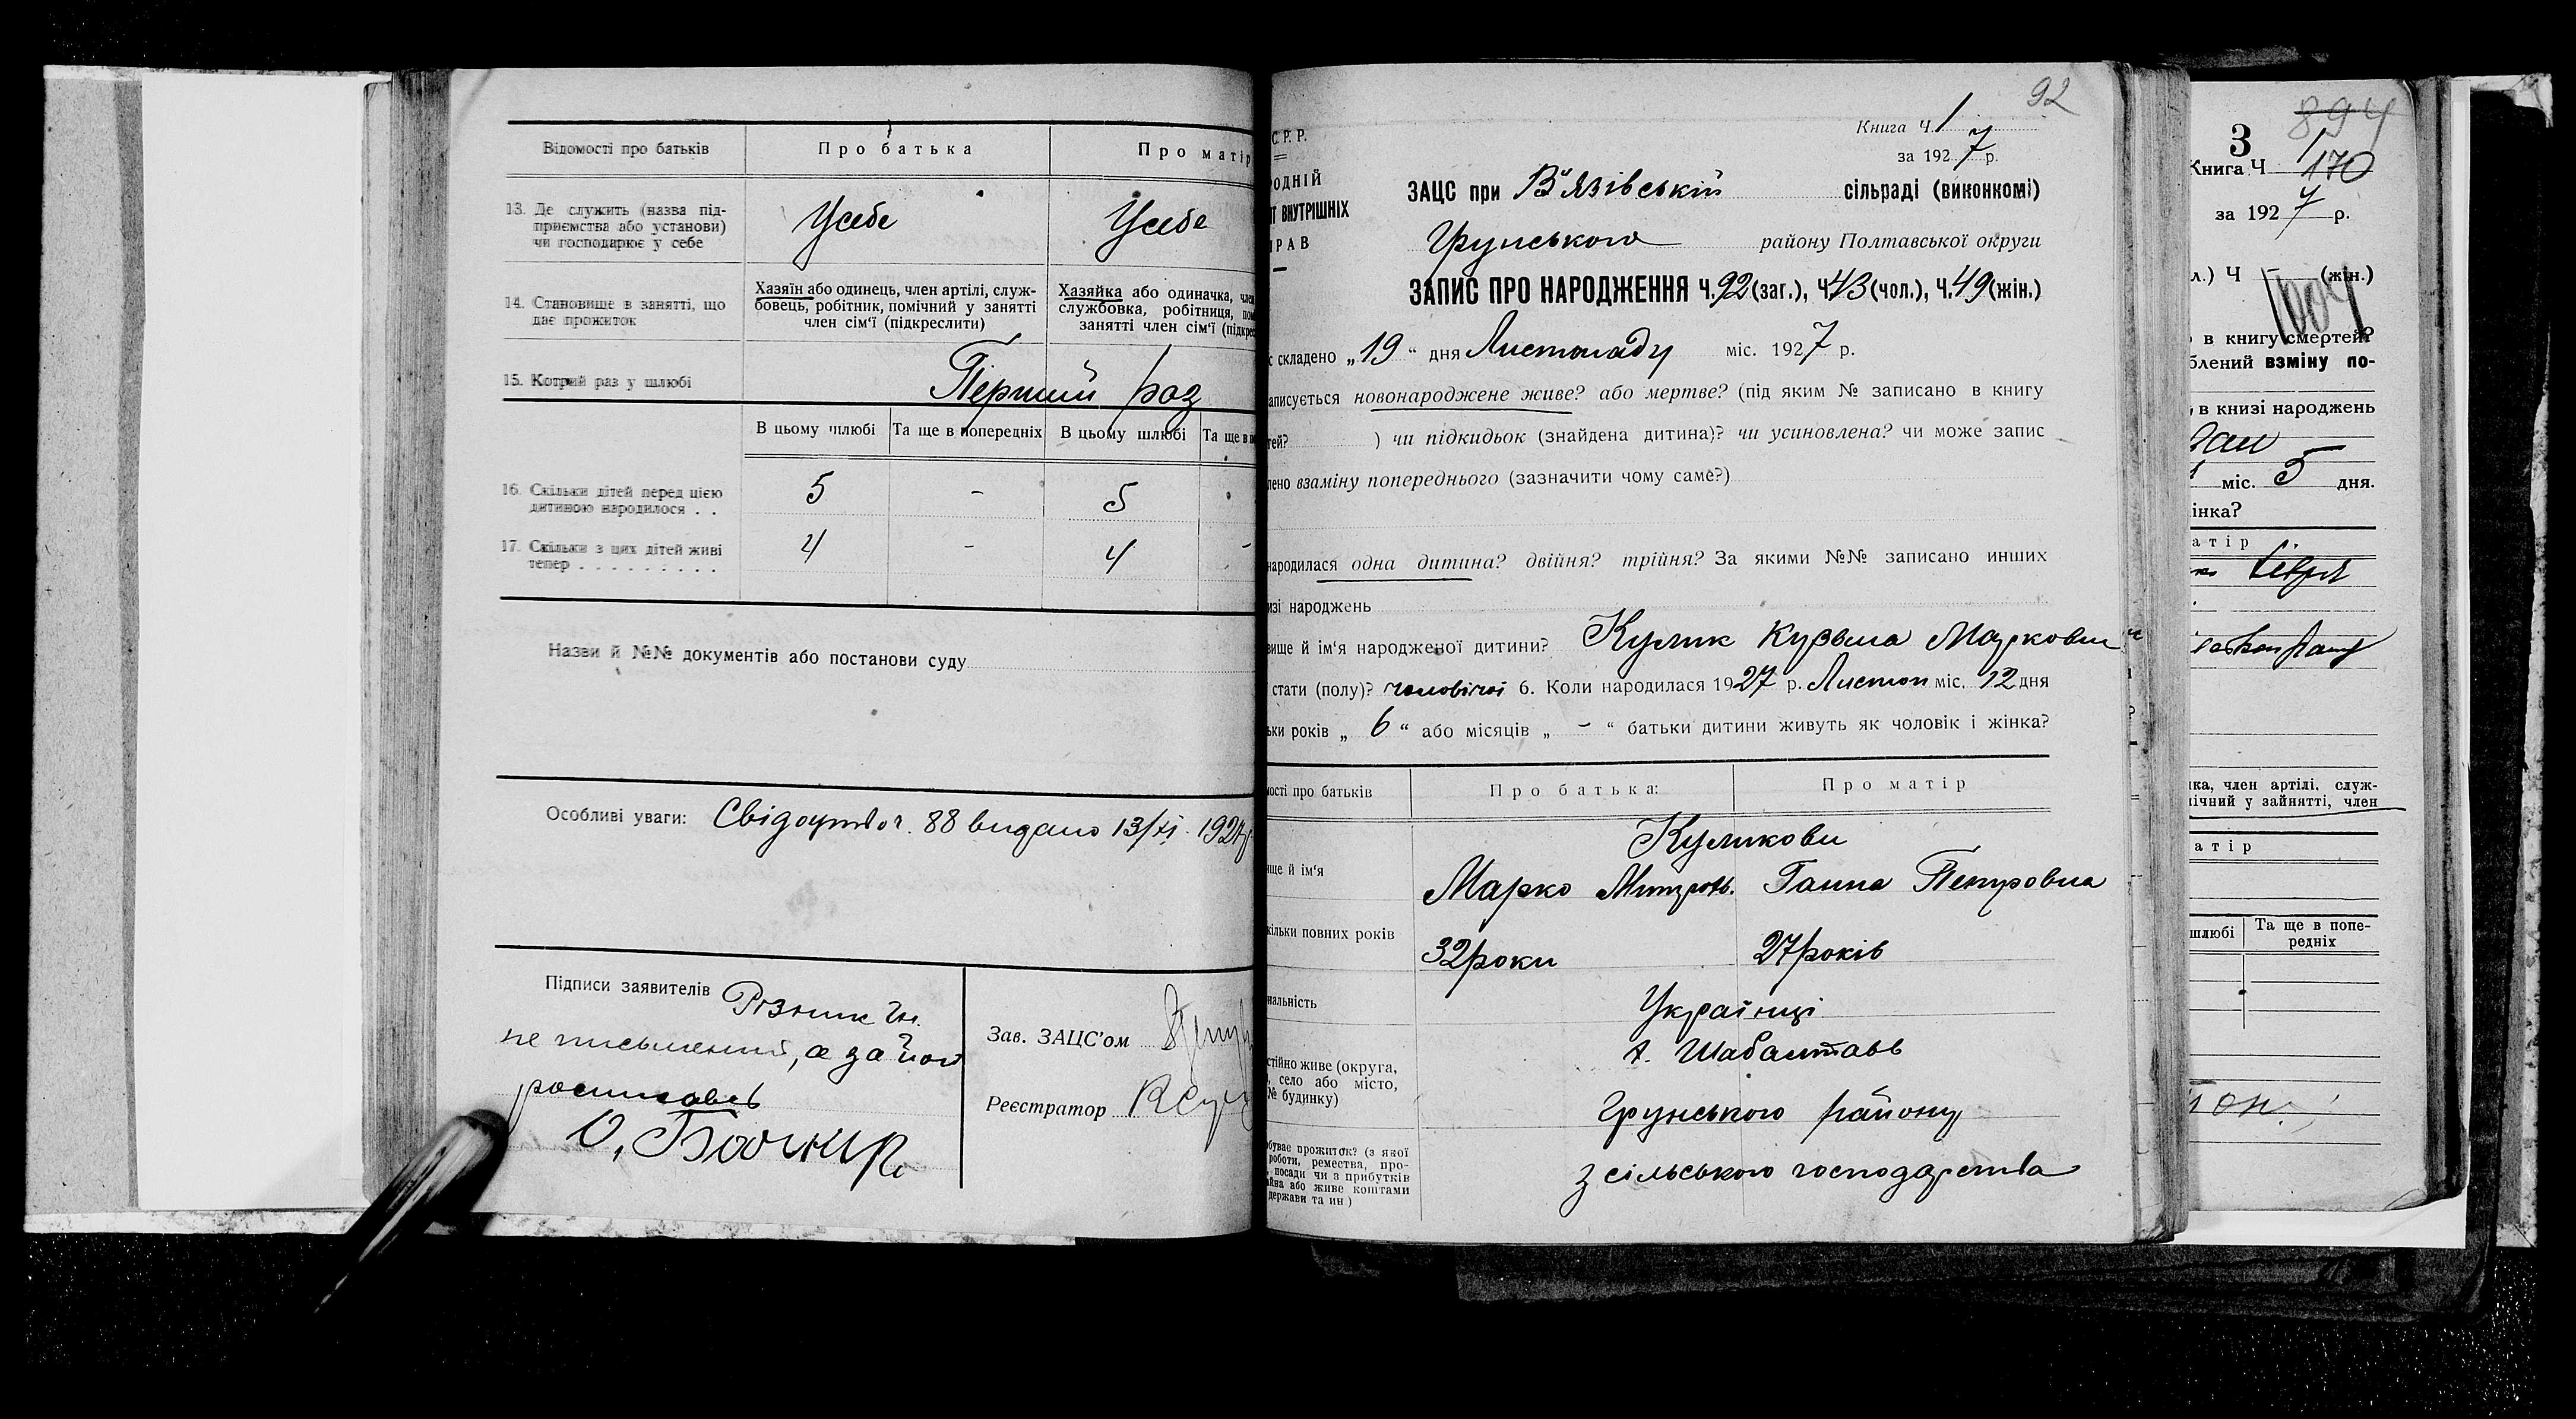 Відомості про батьків
Про батька
Про матір
13. Де служить (назва під-
приємства або установи)
чи господарює у себе
Усебе
Усебе
14. Становище в занятті, що
дає прожиток
Хазяїн або одинець, член артілі, служ-
бовець, робітник, помічний у занятті
член сім'ї (підкреслити)
Хазяйка або одиначка, член
службовка, робітниця, пом
занятті член сім'ї (підкрес
15. Котрий раз у шлюбі
Перший раз
В цьому шлюбі
Та ще в попередніх
В цьому шлюбі
Та ще в
16. Скільки дітей перед цією
дитиною народилося . .
5 - 5
17. Скільки з цих дітей живі
тепер . . . . . . . . .
4 - 4 -
Назви й №№ документів або постанови суду
Особливі уваги: Свідоцтво ч. 88 видано 13/XI 1927р
Підписи заявителів
не письмений, а за його
росписавсь
Зав. ЗАЦС'ом
Реєстратор
92
С.Р.Р.
ОДНІЙ
Т ВНУТРІШНІХ
РАВ
Книга Ч. 1
за 1927 р.
ЗАЦС при В'язівській сільраді (виконкомі)
Грунського району Полтавської округи
ЗАПИС ПРО НАРОДЖЕННЯ Ч. 92 (заг.), Ч. 43 (чол.), Ч. 49 (жін.)
с складено „19“ дня Листопаду міс. 1927 р.
аписується новонароджене живе? або мертве? (під яким № записано в книгу
тей? ) чи підкидьок (знайдена дитина)? чи усиновлена? чи може запис
лено взаміну попереднього (зазначити чому саме?)
народилася одна дитина? двійня? трійня? За якими №№ записано инших
изі народжень
вище й ім'я народженої дитини? Кулик Кузьма Маркович
стати (полу)? чоловічої 6. Коли народилася 1927 р. Листоп міс. 12 дня
ьки років „6“ або місяців „-“ батьки дитини живуть як чоловік і жінка?
мості про батьків
Про батька:
Про матір
Куликови
ище й ім'я
Марко Митров. Ганна Петровна
кільки повних років
32 роки 27 років
нальність
Українці
стійно живе (округа,
, село або місто,
№ будинку)
х. Шабалтаєв
Грунського району
обуває прожиток? (з якої
роботи, ремества, про-
, посади чи з прибутків
айна або живе коштами
держави та ин)
з сільського господарства
894
3
Книга Ч 1
170
за 1927 р.
л.) Ч - (жін.)
1004
в книгу смертей?
блений взміну по-
в книзі народжень
міс. 5 дня.
інка?
атір
ка, член артілі, служ-
ічний у зайнятті, член
атір
шлюбі
Та ще в попе-
редніх